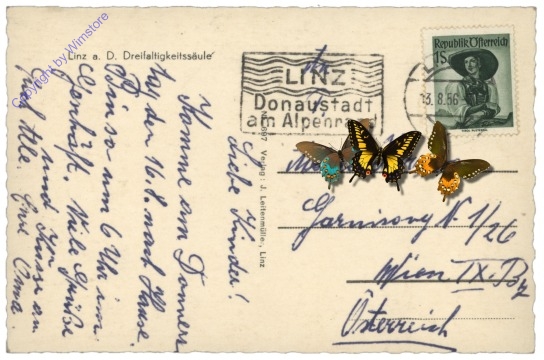 Linz a. D. Dreifaltigkeitssäule
Copyright by Wimstore
Liebe Kinder!
Komme am Donners
tag den 16.8. nach Hause.
Bin so um 6 Uhr im
Geschäft. Viele Grüße
und Küsse an
alle. Eure Oma.
667 Verlag: J. Leitenmüller, Linz
LINZ
Donaustadt
am Alpenrand
Republik Österreich
1S
13.8.56
Garnisong. N 1/26
Wien IX. Bz
Österreich